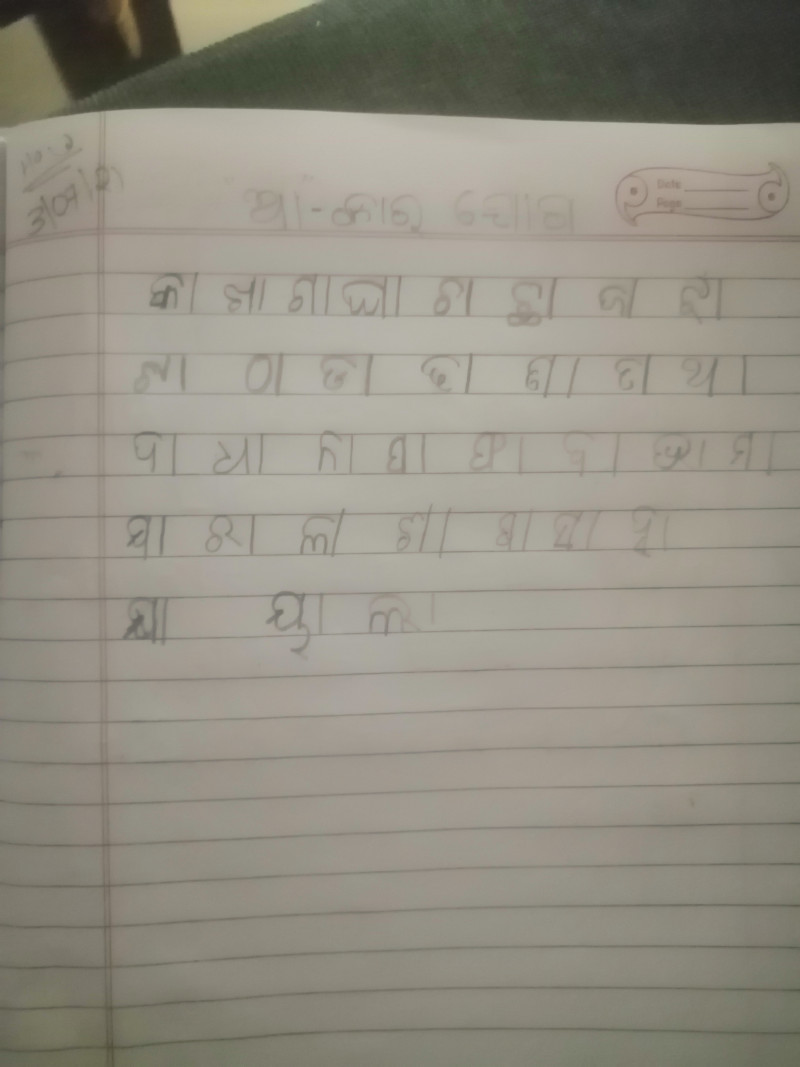 ଆ-କାର ଯୋଗ
Date
Page
କା ଖା ଗା ଘା ଚା ଛା ଜା ଝା
ଠା ଡା ଢା ଣା ତା ଥା
ଦା ଧା ନା ପା ଫା ବା ଭା ମା
ଯା ରା ଲା ଶା ଷା ସା ହା
କ୍ଷା ୟା ଳା